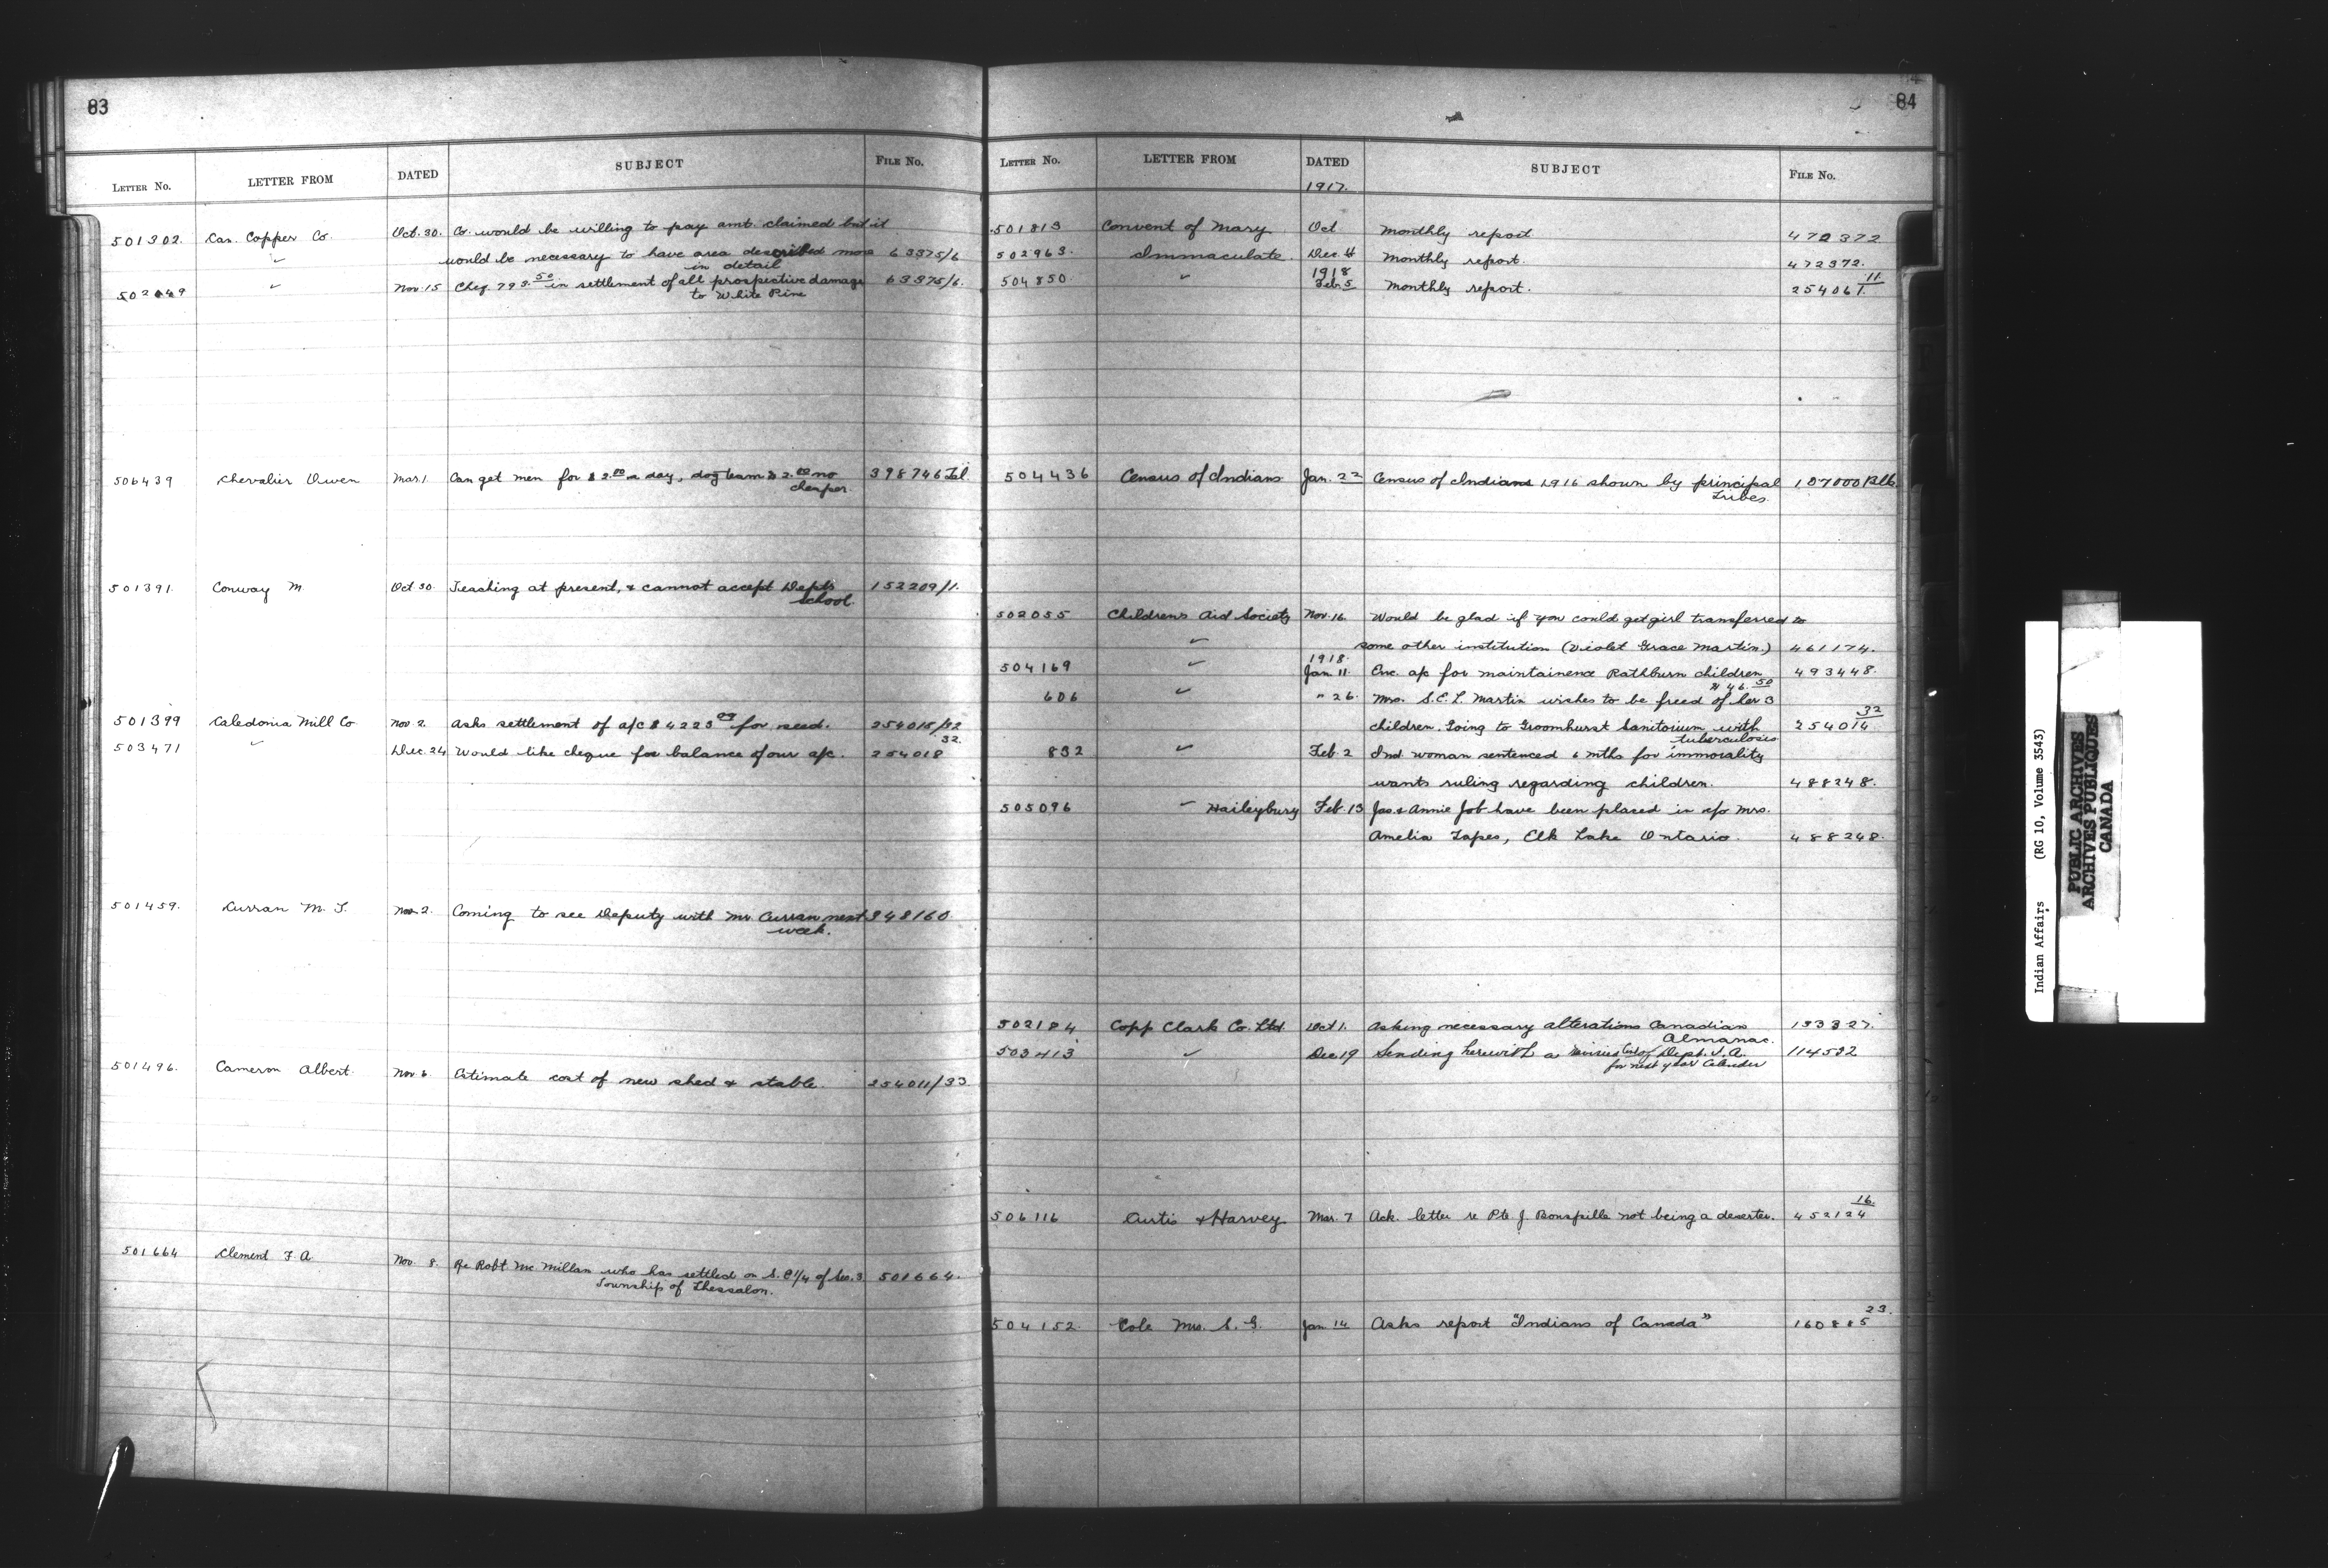 83
LETTER No. LETTER FROM DATED SUBJECT FILE No.
501302. Can. Copper Co. Oct. 30. Co. would be willing to pay amt. claimed but it
✓ would be necessary to have area described more 63375/6.
in detail
502449 ✓ Nov. 15 Cheq. 793.50 in settlement of all prospective damage 63375/6.
to White Pine
506439 Chevalier Owen Mar. 1. Can get men for $2.00 a day, dog team $2.00 no 398746 Tel.
cheaper.
501391. Conway M. Oct 30. Teaching at present, & cannot accept Dept's 152209/1.
school.
501399 Caledonia Mill Co Nov. 2. Asks settlement of a/c $4223.09 for seed. 254015/32
503471 ✓ Dec. 24 Would like cheque for balance of our a/c. 254018 32.
501459. Curran M. J. Nov. 2. Coming to see Deputy with Mr. Curran next 348160.
week.
501496. Cameron Albert. Nov. 6. Estimate cost of new shed & stable. 254011/33
501664 Clement F. A. Nov. 8. Re Robt Mc Millan who has settled on S.E 1/4 of Sec. 3. 501664.
Township of Thessalon.
84
LETTER No. LETTER FROM DATED SUBJECT FILE No.
1917.
501813 Convent of Mary Oct Monthly report 472372
502963. Immaculate. Dec. 4 Monthly report. 472372.
504850. " 1918 Feb. 5 Monthly report. 254061 11
504436 Census of Indians Jan. 22 Census of Indians 1916 shown by principal 107000 Blk.
Tribes.
502055 Childrens Aid Society Nov. 16. Would be glad if you could get girl transferred to
✓ some other institution (Violet Grace Martin.) 461174.
1918.
504169 ✓ Jan. 11. Enc. a/c for maintainence Rathburn children 493448.
$46.50
606 ✓ " 26. Mrs. S.E.L. Martin wishes to be freed of her 3
children. Going to Groomhurst Sanitorium with 254014 32
tuberculosis
832 ✓ Feb. 2 Ind. woman sentenced 6 mths for immorality
wants ruling regarding children. 488248.
505096 ✓ Haileybury Feb. 13 Jas. & Annie Job have been placed in c/o Mrs.
Amelia Tapes, Elk Lake Ontario. 488248.
502184 Copp Clark Co. Ltd. Oct 1. Asking necessary alterations Canadian 133327.
Almanac.
503413 ✓ Dec 19 Sending herewith a revised list of Dept. I. A. 114532
for next year Calender
506116 Curtis & Harvey Mar. 7 Ack. letter re Pte. J. Bonspille not being a deserter. 452124 16.
504152. Cole Mrs. S. G. Jan 14 Asks report "Indians of Canada" 160885 23.
Indian Affairs (RG 10, Volume 3543)
PUBLIC ARCHIVES
ARCHIVES PUBLIQUES
CANADA